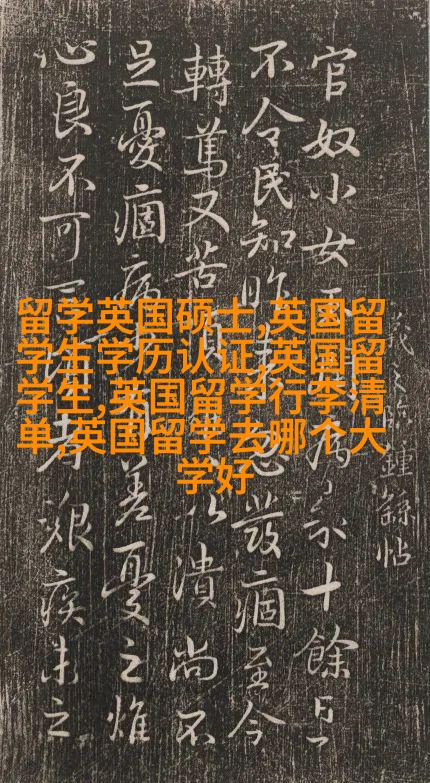 留学英国硕士,英国留
学生学历认证,英国留
学生,英国留学行李清
单,英国留学去哪个大
学好
臨鍾繇帖
官奴小女病來十餘日
不令民知昨發痼至今
轉篤又苦以潰尚不
足憂痼病差憂之燋
心良不可艱疾未之